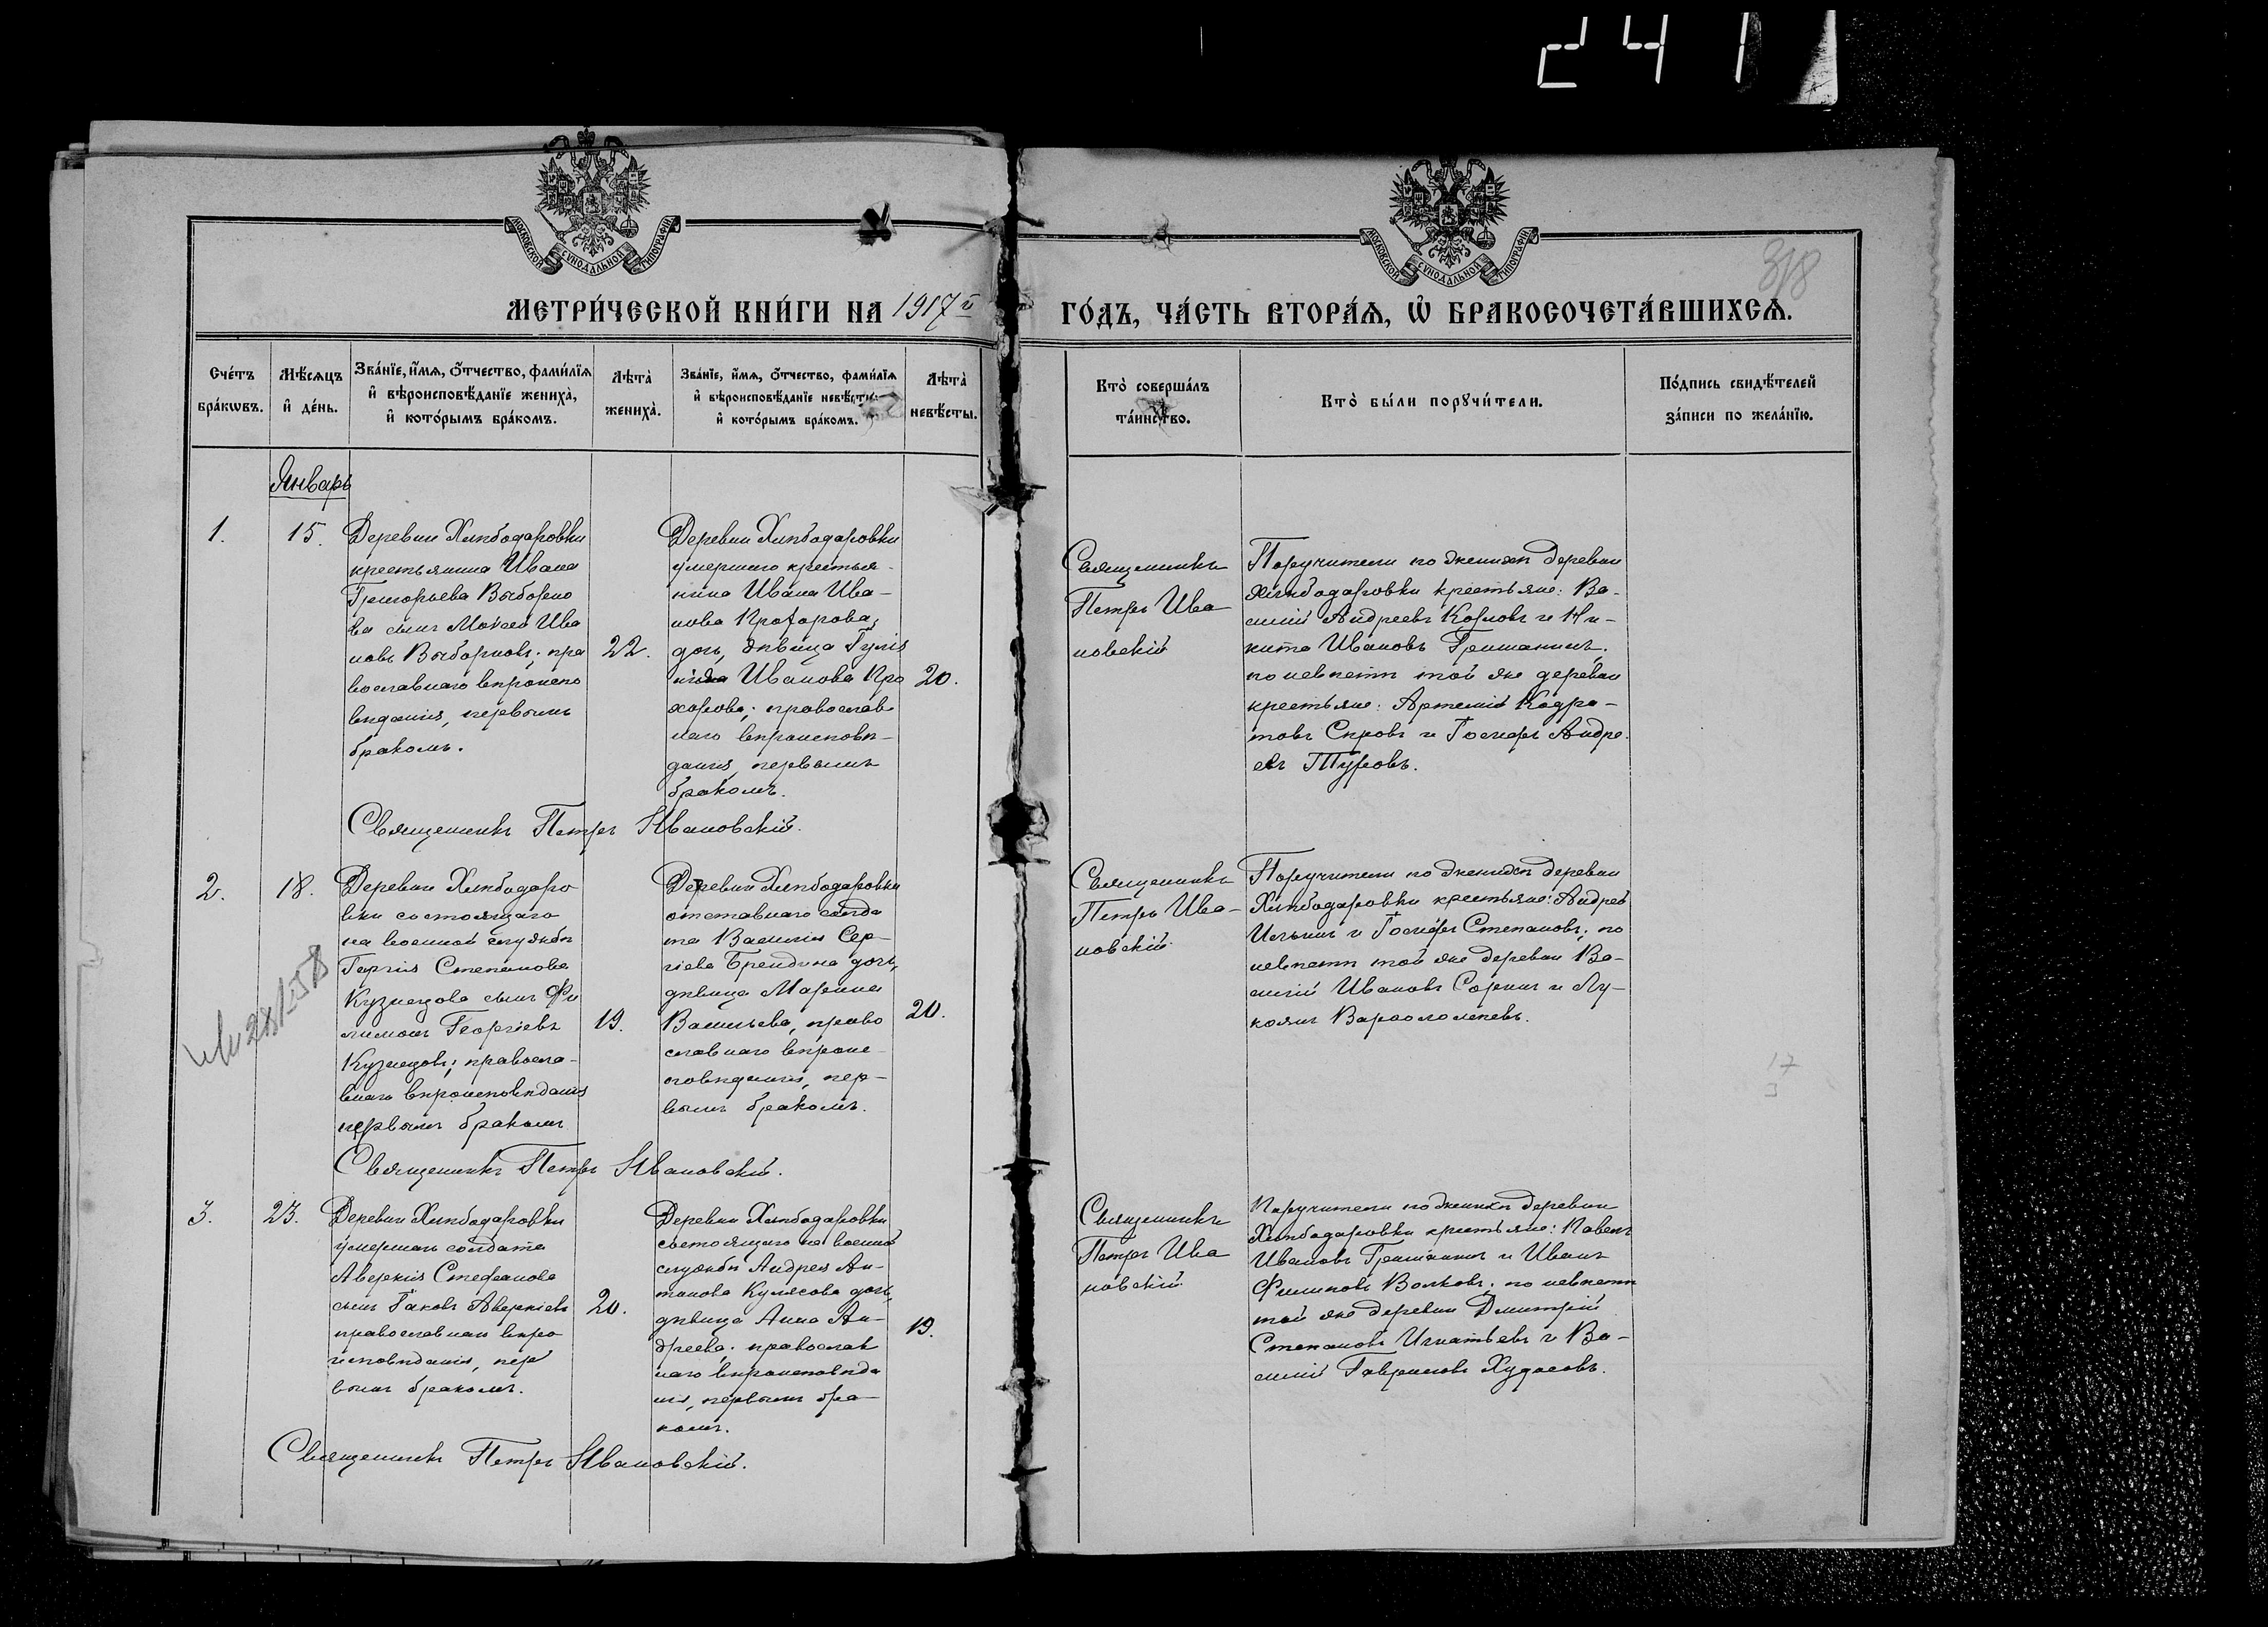 241
МОСКОВСКОЙ СУНОДАЛЬНОЙ ТИПОГРАФІИ
МОСКОВСКОЙ СУНОДАЛЬНОЙ ТИПОГРАФІИ
318
МЕТРИ́ЧЕСКОЙ КНИ́ГИ НА 1917й ГО́ДЪ, ЧА́СТЬ ВТОРА́Ѧ, Ѽ БРАКОСОЧЕТА́ВШИХСѦ.
Сче́тъ бра́кѡвъ.
Мѣ́сѧцъ и҆ де́нь.
Зва́нїе, и҆́мѧ, ѻ҆́тчество, фами́лїѧ
и҆ вѣроисповѣ́данїе жениха̀,
и҆ кото́рымъ бра́комъ.
Лѣта̀ жениха̀.
Зва́нїе, и҆́мѧ, ѻ҆́тчество, фами́лїѧ
и҆ вѣроисповѣ́данїе невѣ́сты,
и҆ кото́рымъ бра́комъ.
Лѣта̀ невѣ́сты.
Кто̀ соверша́лъ
та́инство.
Кто̀ бы́ли порꙋчи́тели.
По́дпись свидѣ́телей
за́писи по жела́нїю.
Январь
1.
15.
Деревни Хлѣбодаровки
крестьянина Ивана
Григорьева Выборно
ва сынъ Моѵсей Ива
новъ Выборновъ; пра
вославнаго вѣроиспо
вѣданія, первымъ
бракомъ.
22.
Деревни Хлѣбодаровки
умершаго крестья-
нина Ивана Ива-
нова Прохорова,
дочь, дѣвица
Иванова Про
хорова; православ
наго вѣроисповѣ-
данія, первымъ
бракомъ.
20.
Священникъ
Петръ Ива
новскій
Поручители по женихѣ деревни
Хлѣбодаровки крестьяне: Ва-
силій Андреевъ Козловъ и Ни-
кита Ивановъ Гришанинъ,
по невѣстѣ той же деревни
крестьяне: Артемій
и Іосифъ Андре-
евъ Туровъ.
Священникъ Петръ Ивановскій.
2.
18.
Деревни Хлѣбодаро
вки состоящаго
на военной службѣ
Георгія Степанова
Кузнецова сынъ Фи
лимонъ Георгіевъ
Кузнецовъ; правосла-
внаго вѣроисповѣданія
первымъ бракомъ
19.
Деревни Хлѣбодаровки
отставнаго солда
та Василія Сер-
гіева Брендина дочь,
дѣвица Марина
Васильева, право
славнаго вѣроис-
повѣданія, пер-
вымъ бракомъ.
20.
Священникъ
Петръ Ива-
новскій.
Поручители по женихѣ деревни
Хлѣбодаровки крестьяне: Андрей
Ильинъ и Іосифъ Степановъ; по
невѣстѣ той же деревни Ва-
силій Ивановъ Соринъ и Лу-
кіянъ Варѳоломеевъ.
17
3
Священникъ Петръ Ивановскій.
3.
23.
Деревни Хлѣбодаровки
умершаго солдата
Аверкія Стефанова
сынъ Іаковъ Аверкіевъ
православнаго вѣро
исповѣданія, пер
вымъ бракомъ.
20.
Деревни Хлѣбодаровки
состоящаго на военной
службѣ Андрея Ан-
тонова Кулясова дочь,
дѣвица Анна Ан-
дреева; православ
наго вѣроисповѣда
нія, первымъ бра-
комъ.
19.
Священникъ
Петръ Ива
новскій
Поручители по женихѣ деревни
Хлѣбодаровки крестьяне: Павелъ
Ивановъ Гришанинъ и Иванъ
Филиповъ Волковъ; по невѣстѣ
той же деревни Дмитрій
Степановъ Игнатьевъ и Ва-
силій Гавриловъ Худасовъ.
Священникъ Петръ Ивановскій.